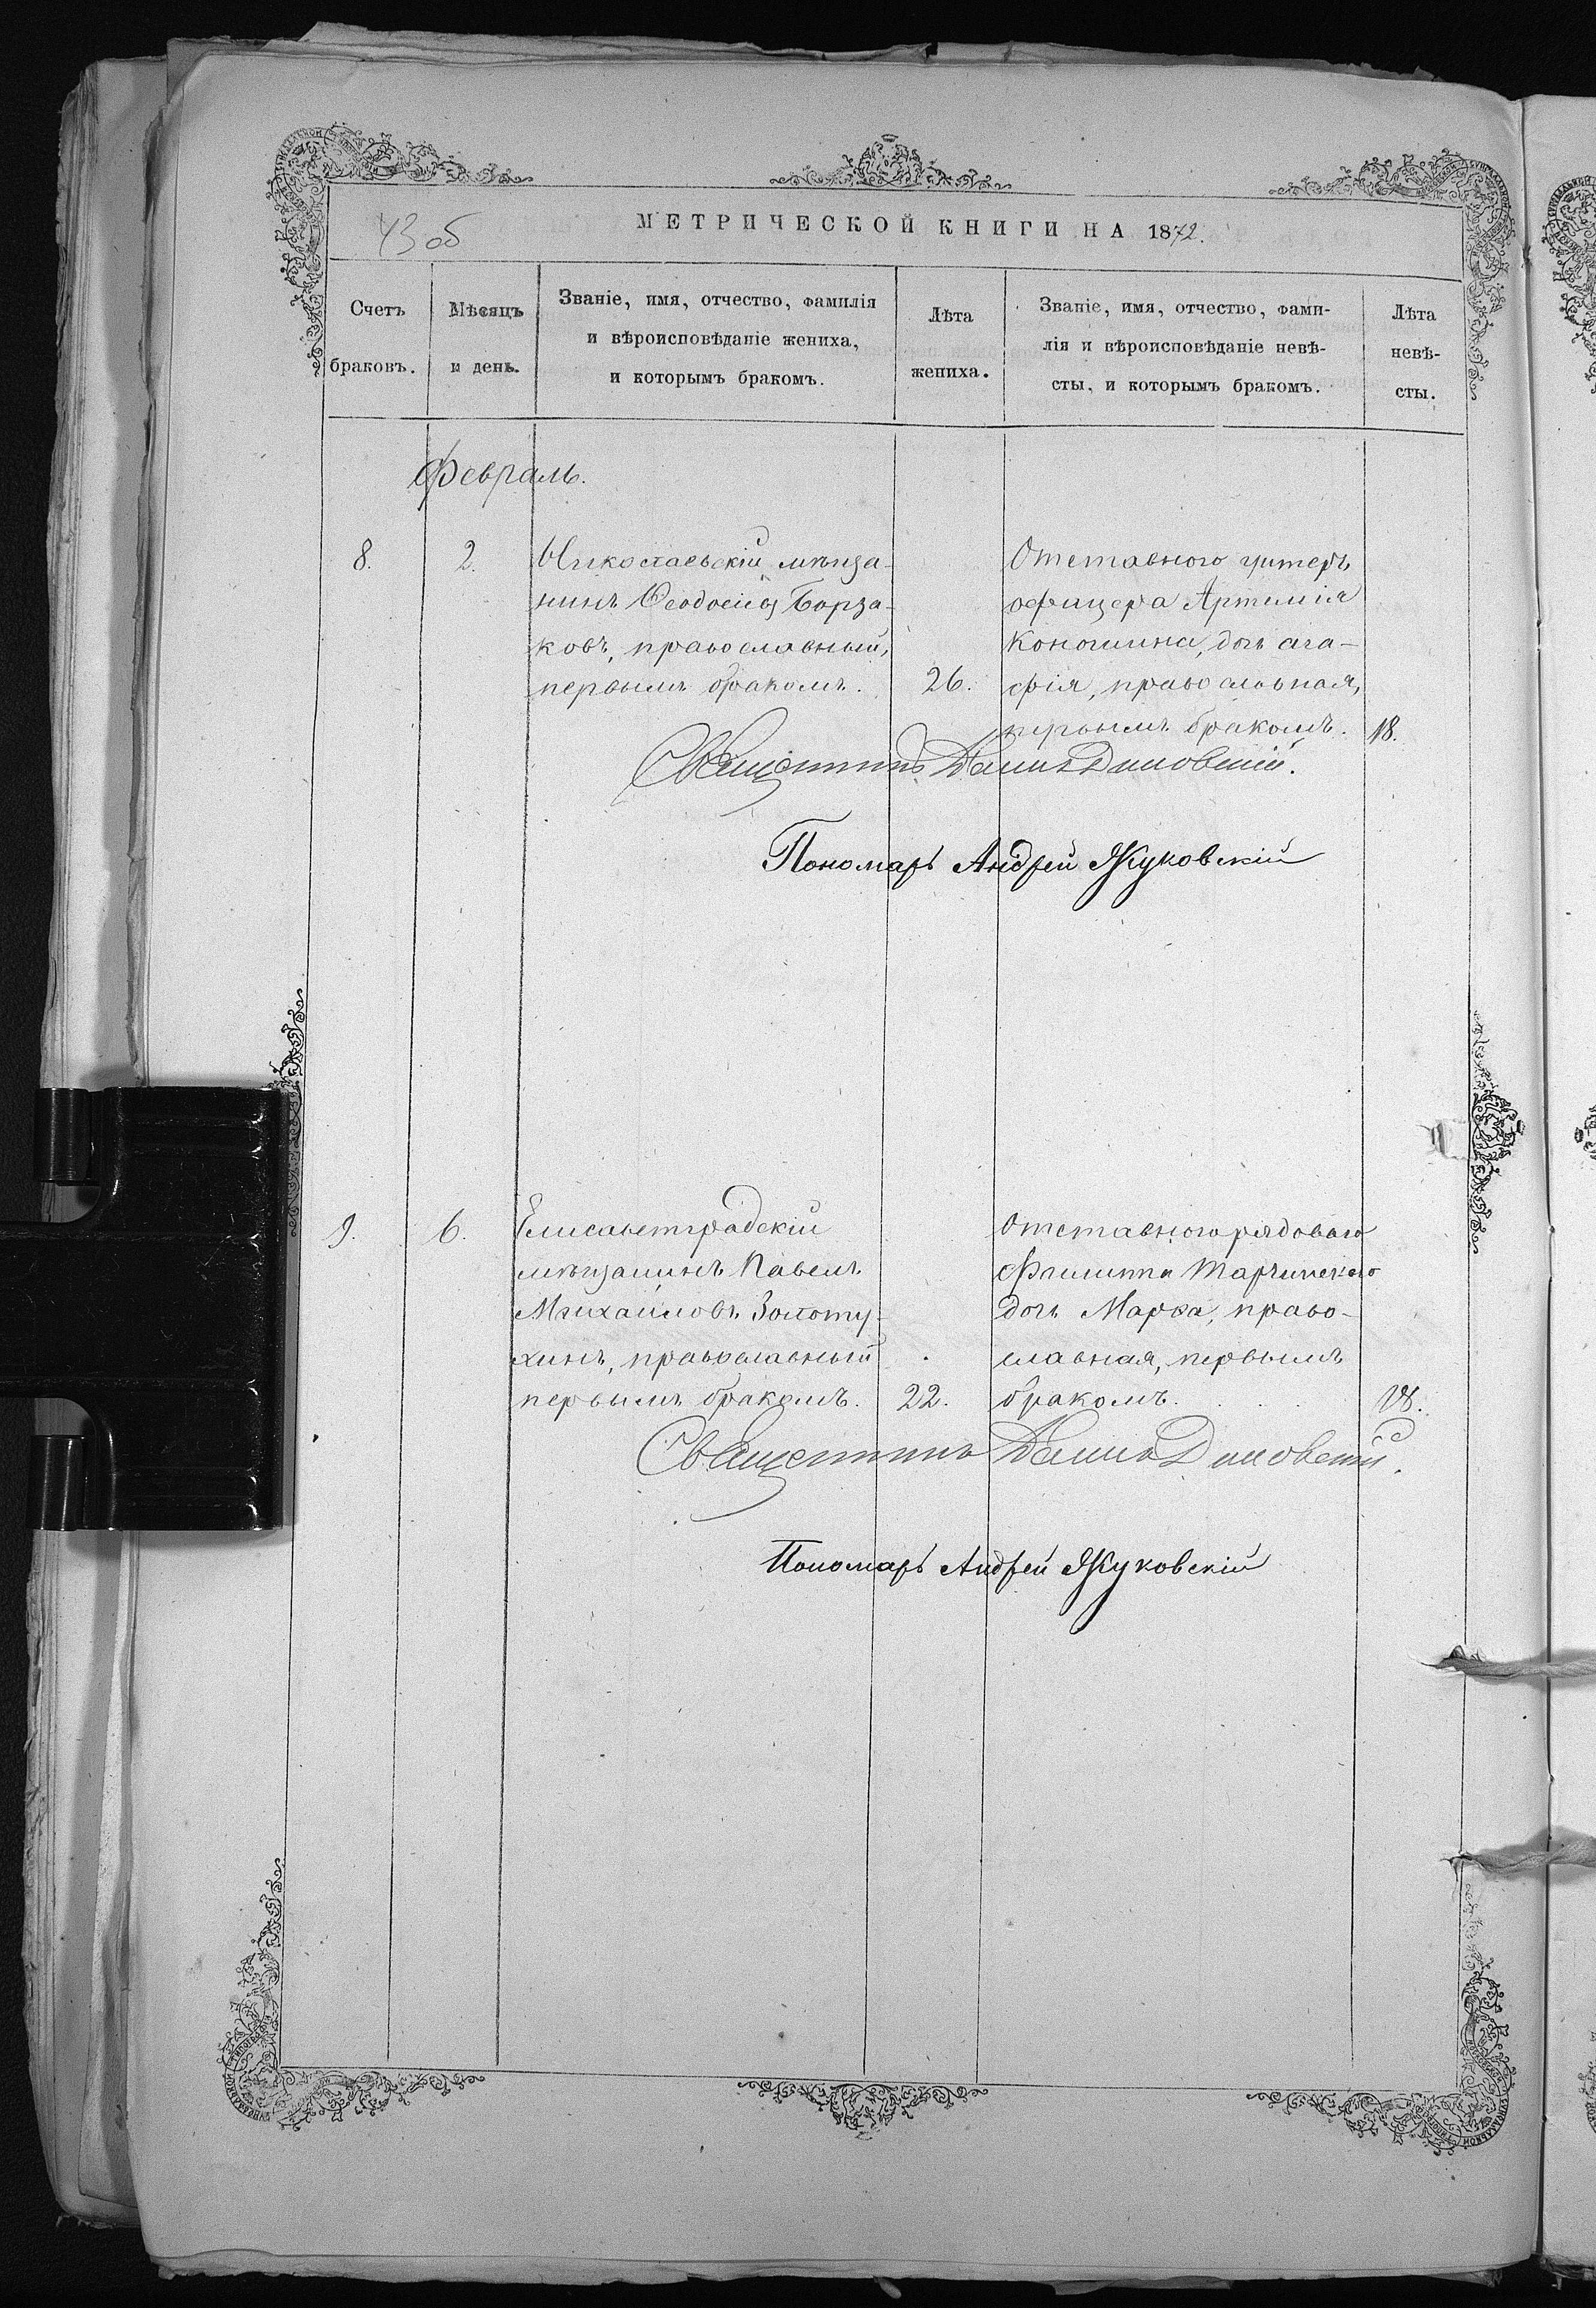 43 об
МЕТРИЧЕСКОЙ КНИГИ НА 1872.
Счетъ браковъ.
Мѣсяцъ и день.
Званіе, имя, отчество, фамилія
и вѣроисповѣданіе жениха,
и которымъ бракомъ.
Лѣта жениха.
Званіе, имя, отчество, фами-
лія и вѣроисповѣданіе невѣ-
сты, и которымъ бракомъ.
Лѣта невѣ-
сты.
Февраль.
8.
2.
Николаевскій мѣща-
нинъ Ѳеодосій Борза-
ковъ, православный,
первымъ бракомъ.
26.
Отставного унтеръ
офицера Артемія
дочь Ага-
фія, православная,
первымъ бракомъ.
18.
Священникъ
Пономарь Андрей Жуковскій
9.
6.
Елисаветградскій
мѣщанинъ Павелъ
Михайловъ Золоту-
хинъ, православный
первымъ бракомъ.
22.
Отставного рядового
Филиппа
дочь Марѳа, право-
славная, первымъ
бракомъ.
18.
Священникъ
Пономарь Андрей Жуковскій